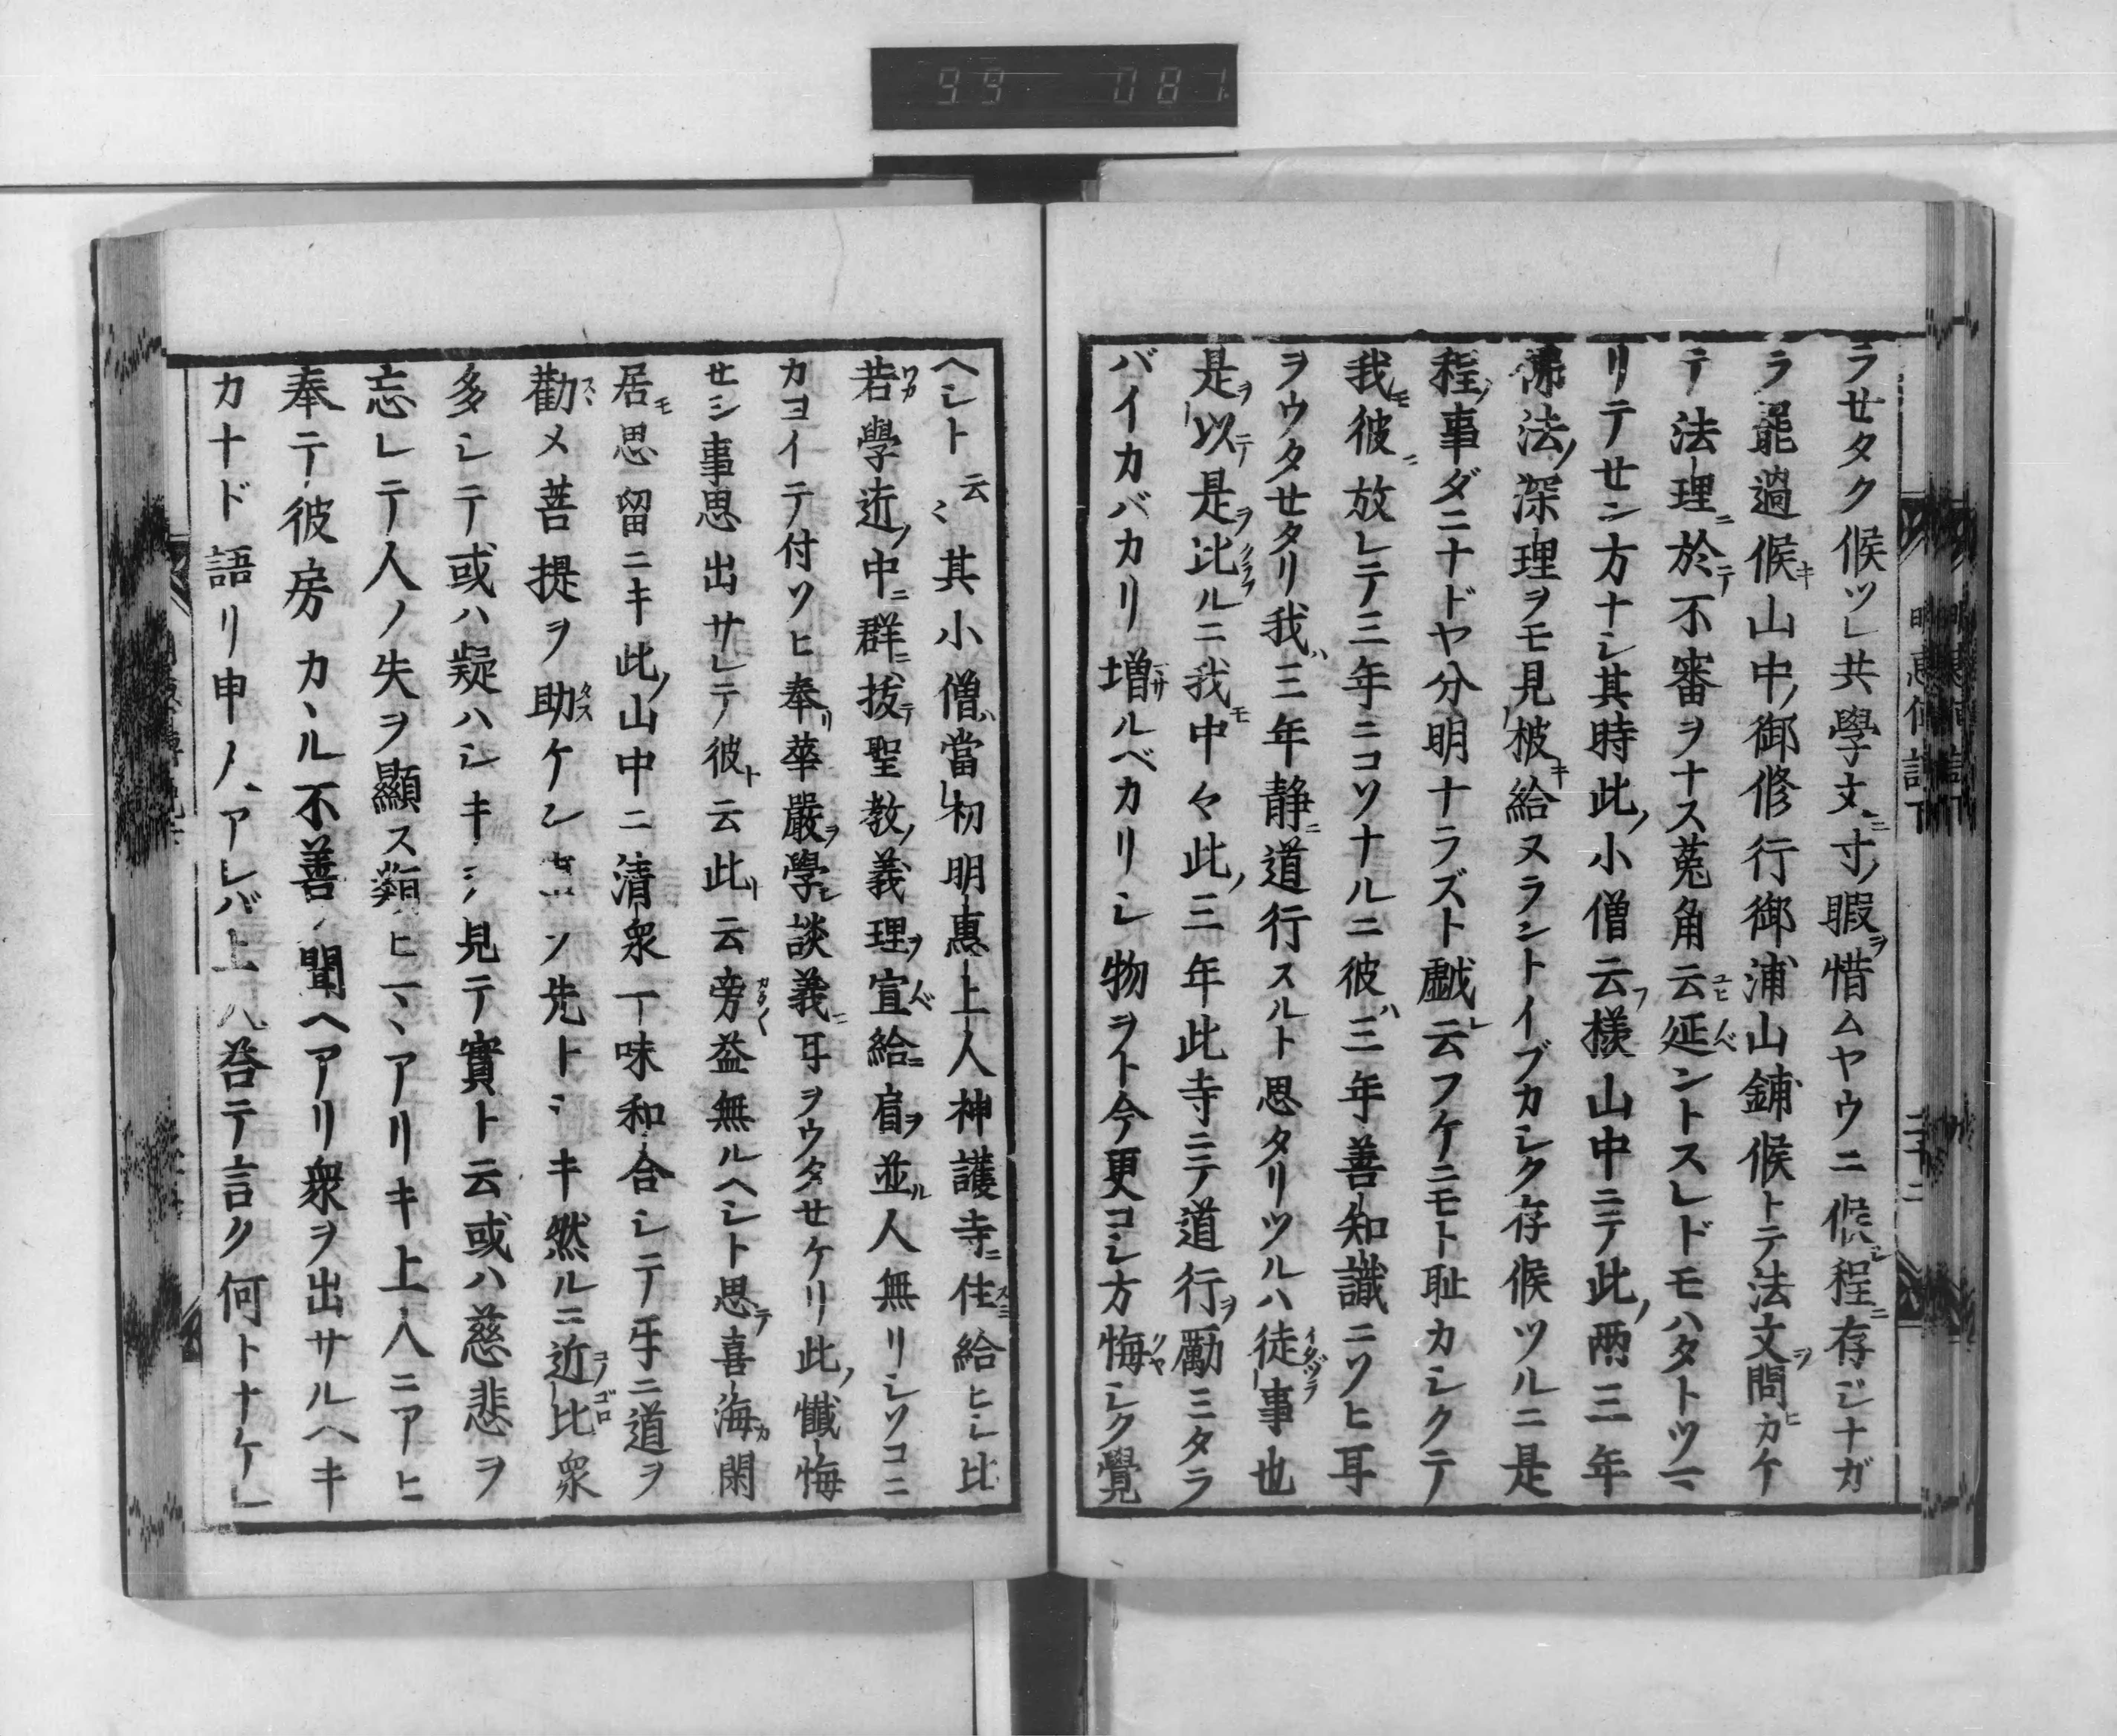 99 081
ラせタク候ツレ共學文ニ寸ノ暇ヲ惜ムヤウニ候シ程ニ存ジナガ
ラ罷過候キ山中ノ御修行御浦山鋪候トテ法文ヲ問ヒカケ
テ法理ニ於テ不審ヲナス菟角云ヒ延ベントスレドモハタトツマ
リテせン方ナシ其時此ノ小僧云フ樣山中ニテ此ノ兩三年
佛法ノ深理ヲモ見披キ給ヌラントイブカシク存候ツルニ是
程ノ事ダニナドヤ分明ナラズト戯レ云フケニモト耻カシクテ
我モ彼ニ放レテ三年ニコソナルニ彼ハ三年善知識ニソヒ耳
ヲウタせタリ我ハ三年静ニ道行スルト思タリツルハ徒事也
是ヲ以テ是ヲ比ルニ我モ中々此ノ三年此寺ニテ道行ヲ勵ミタラ
バイカバカリ増ルベカリシ物ヲト今更コシ方悔シク覺
ヘシト云〻其小僧ハ當初明惠上人神護寺ニ住給ヒシ比
若學近ノ中ニ群ニ抜テ聖教ノ義理ヲ宣給ニ肩ヲ並ル人無リシソコニ
カヨイテ付ソヒ奉リ華嚴ヲ學シ談義ニ耳ヲウタせケリ此ノ懺悔
せシ事思出サレテ彼ト云此ト云旁益無ルヘシト思テ喜海カ閑
居モ思留ニキ此ノ山中ニ清衆一味和合シテ互ニ道ヲ
勸メ菩提ヲ助ケン先トシキ然ルニ近比衆
多シテ或ハ疑ハシキヲ見テ實ト云或ハ慈悲ヲ
忘レテ人ノ失ヲ顯ス類ヒマヽアリキ上人ニアヒ
奉テ彼房カヽル不善ノ聞ヘアリ衆ヲ出サルヘキ
カナド語リ申人アレバ上人答テ言ク何トナケレ